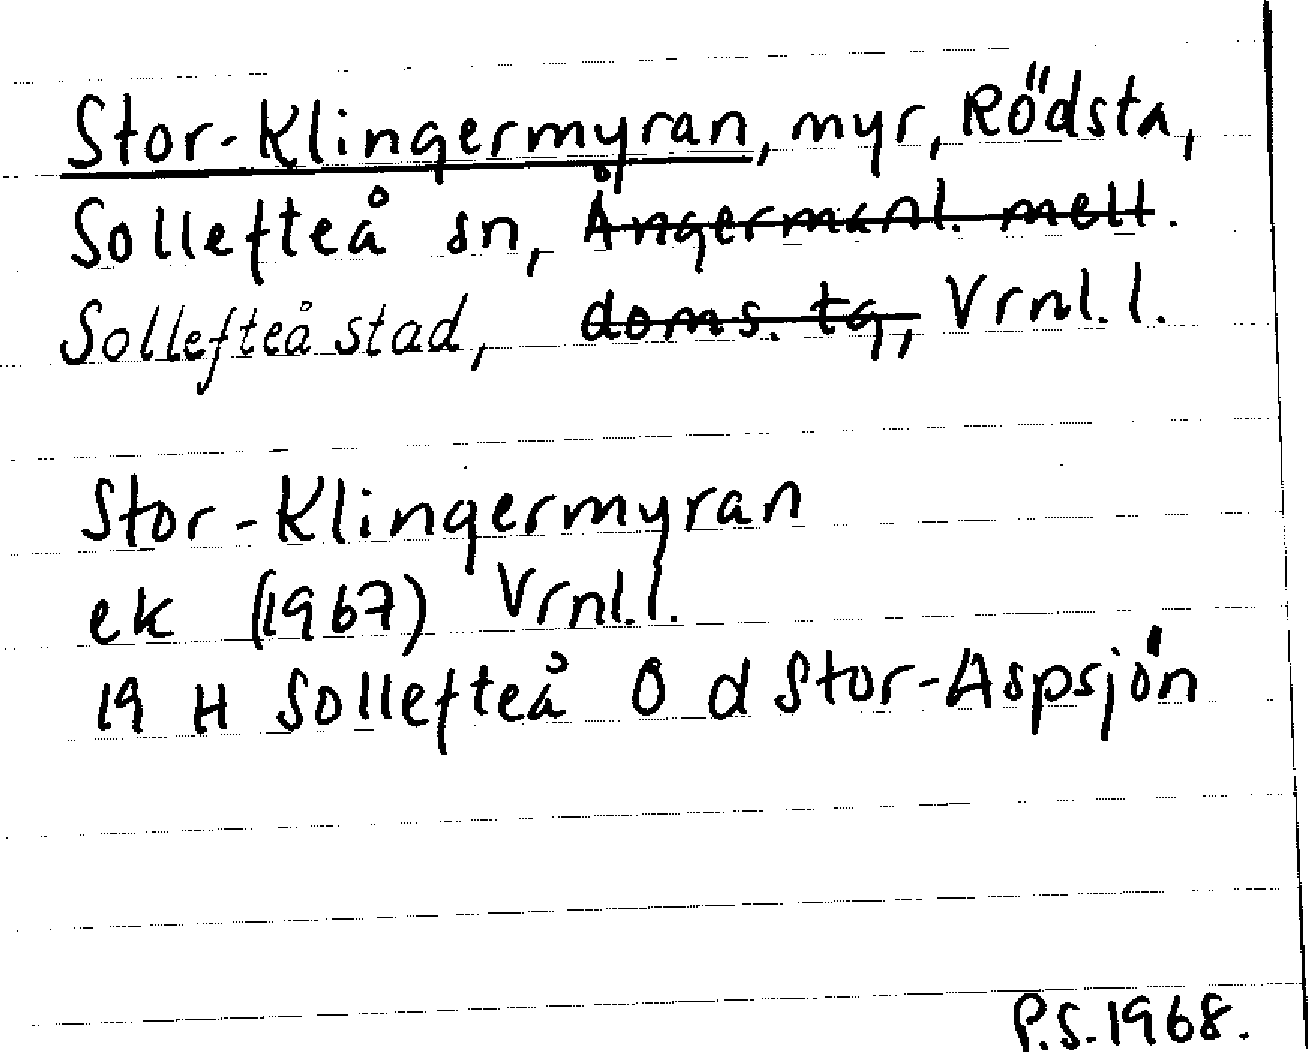 Stor-Klingermyran, myr, Rödsta,
Sollefteå sn, Ångermanl. mell.
Sollefteå stad, doms. tg, Vrnl. l.
Stor-Klingermyran
ek (1967) Vrnl. l.
19 H Sollefteå O d Stor-Aspsjön
P.S. 1968.